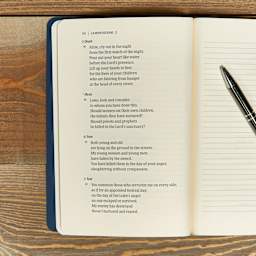 LAMENTATIONS 2
Arise, cry out in the night
from the first watch of the night.
Pour out your heart like water
before the Lord's presence.
Lift up your hands to him
for the lives of your children
who are fainting from hunger
at the head of every street.
LORD, look and consider
to whom you have done this.
Should women eat their own children,
the infants they have nurtured?
Should priests and prophets
be killed in the Lord's sanctuary?
Both young and old
are lying on the ground in the streets.
My young women and young men
have fallen by the sword.
You have killed them in the day of your anger,
slaughtering without compassion.
You summon those who terrorize me on every side,
as if for an appointed festival day;
on the day of the LORD's anger
no one escaped or survived.
My enemy has destroyed
those I nurtured and reared.